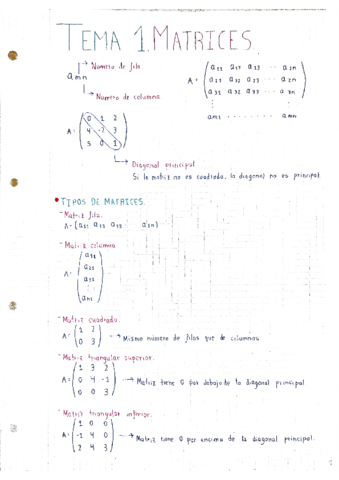 TEMA 1. MATRICES
→ Número de fila.
amn
→ Número de columna.
A = (a11 a12 a13 ... a1n
a21 a22 a23 ... a2n
a31 a32 a33 ... a3n
am1 ... amn)
A = (0 1 2
4 -2 3
5 0 1)
→ Diagonal principal
Si la matriz no es cuadrada, la diagonal no es principal
• TIPOS DE MATRICES.
- Matriz fila.
A = (a11 a12 a13 a1n)
- Matriz columna
A = (a11
a21
a31
⋮
am1)
- Matriz cuadrada.
A = (1 2
0 3) → Mismo número de filas que de columnas
- Matriz triangular superior.
A = (1 3 2
0 4 -1
0 0 3) → Matriz tiene 0 por debajo de la diagonal principal
- Matriz triangular inferior.
A = (1 0 0
-1 4 0
2 4 3) → Matriz tiene 0 por encima de la diagonal principal.